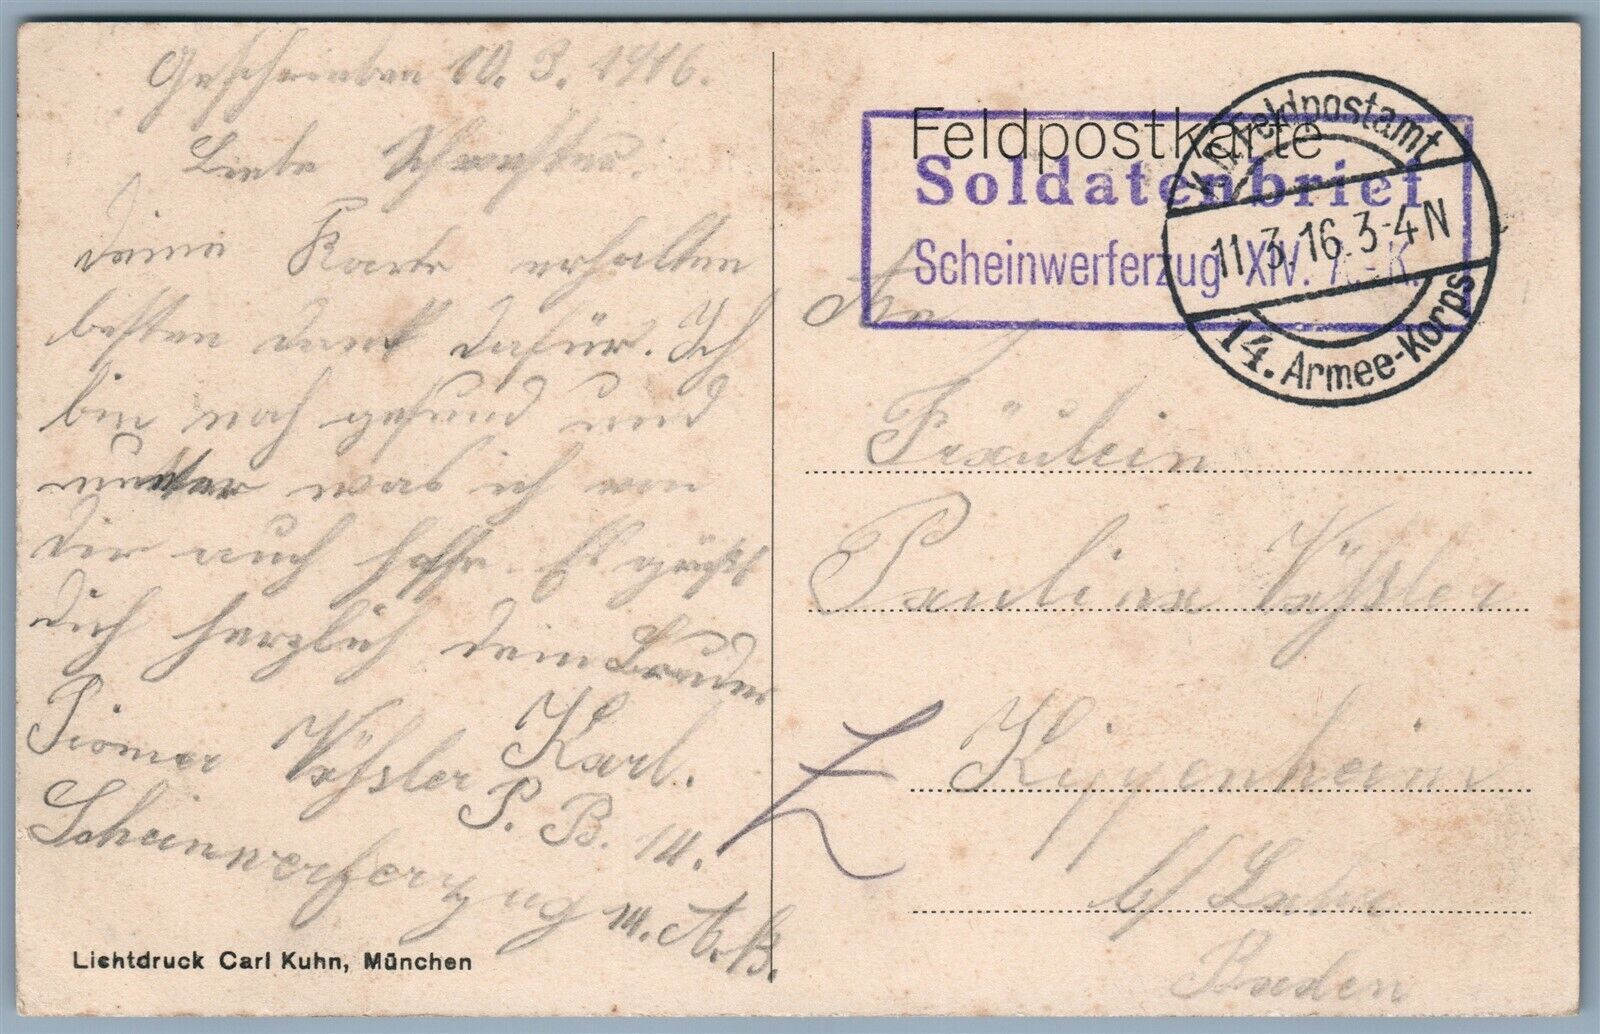 Geschrieben 10. 3. 1916.
Liebe Schwester.
deine Karte erhalten
besten dank dafür. Ich
bin noch gesund und
munter was ich von
dir auch hoffe. Es grüßt
dich herzlich dein Bruder
Pionier Karl.
P. B. 14.
Scheinwerferzug 14. A. K.
Lichtdruck Carl Kuhn, München
Feldpostkarte
Soldatenbrief
Scheinwerferzug XIV. A.-K.
Feldpostamt
11.3.16.3-4N
14. Armee-Korps
An
Fräulein
Paulina
Kippenheim
b/ Lahr
Baden